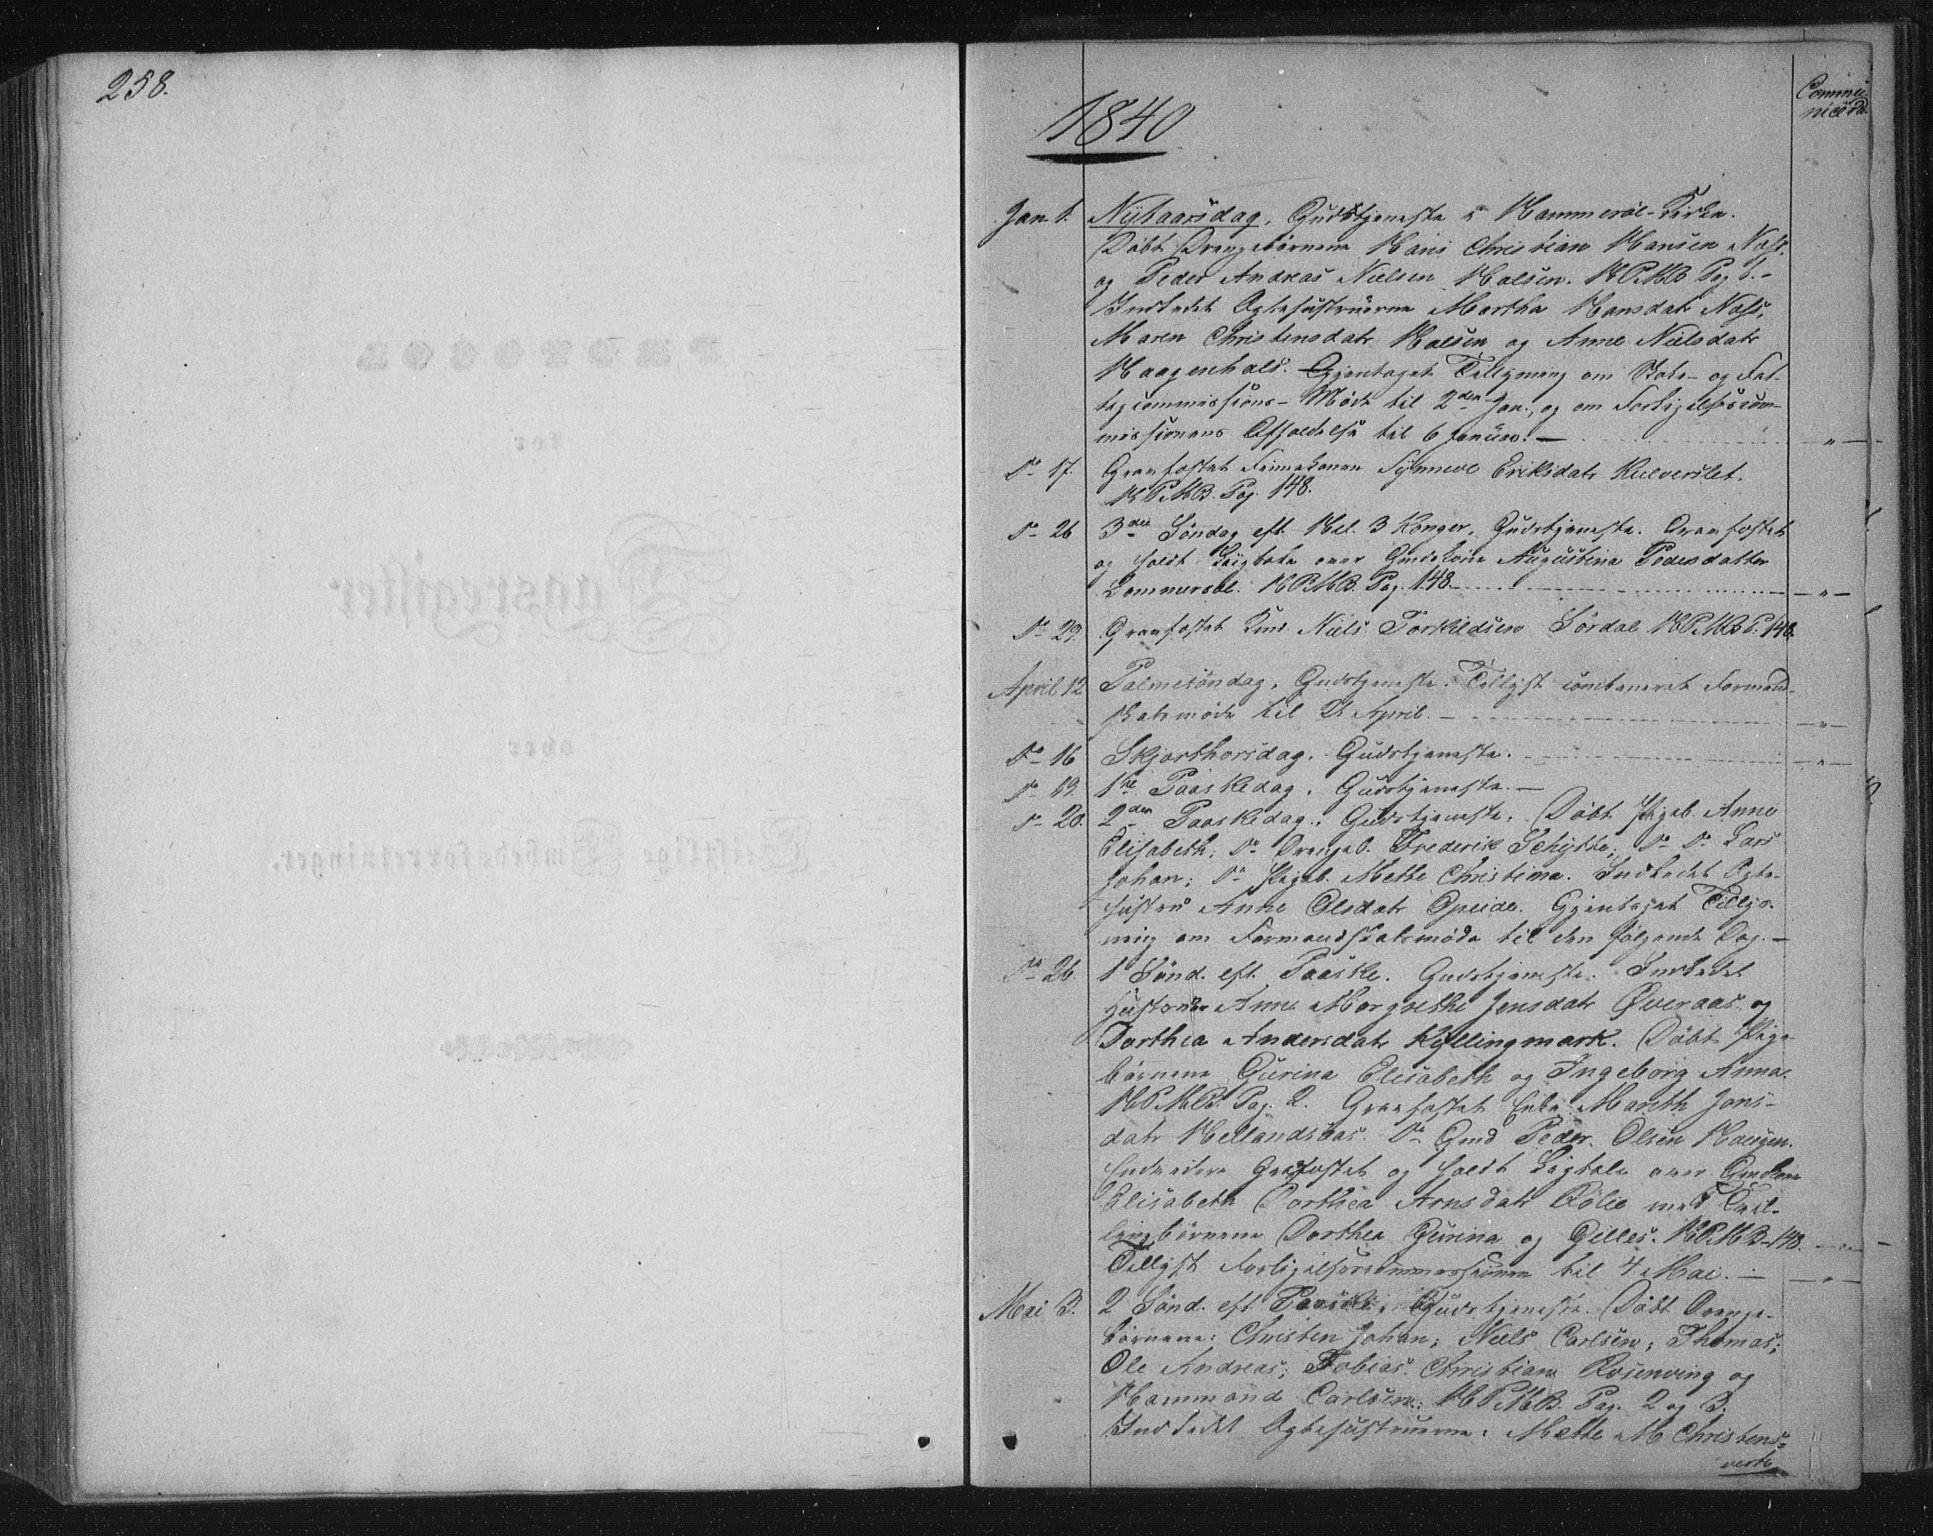 258.
1840
Communicerede.
Jan. 1. Nytaarsdag, Gudstjeneste i Hammerøe-Kirke.
Døbt Drengebørnene Hans Christian Hansen Næss
og Peder Andreas Nielsen Halsen. Pag 1.-
Indledet Ægtehustruerne Martha Hansdatr Næss,
Maren Christensdatr Halsen og Anne Nielsdatr
Haagenhals. Gjentaget Tillysning om Skole- og Fat-
tigcommissions-Møde til 2den Jan., og om Forligelsescom-
missionens Afholdelse til 6 Januar. - "
Do 17. Gravfæstet Synneve Eriksdatr Kulverslet.
Pag. 148.
Do 26 3die Søndag eft. Hel. 3 Konger, Gudstjeneste. Gravfæstet
og holdt Liigtale over Augustina Pedersdatter
Pag. 148. - "
Do 29. Gravfæstet Niels Torkildsen Sørdal P. 148.
April 12 Palmesøndag, Gudstjeneste. Tillyst combineret Formand-
skabsmøde til 21 April. - "
Do 16 Skjærthorsdag. Gudstjeneste. - "
Do 19. 1ste Paaskedag, Gudstjeneste. -
Do 20. 2den Paaskedag, Gudstjeneste. Døbt Pigeb. Anne
Elisabeth; Do Drengeb. Frederik Schytte; Do Do Lars
Johan; Do Pigeb. Mette Christina. Indledet Ægte-
hustru Anne Olsdatr Opeide. Gjentaget Tillys-
ning om Formandskabsmøde til den følgende Dag. -
Do 26. 1 Sønd. eft. Paaske. Gudstjeneste. Indledet
Hustruerne Anne Margrethe Jensdatr Øveraas og
Dorthea Andersdatr Kyllingmark. Døbt Pige-
børnene Gurina Elisabeth og Ingeborg Anna.
Pag. 2. Gravfæstet Enke Marith Jons-
datr Hellandsaas. Do Gmd Peder Olsen Haugen.
Endvidere Gravfæstet og holdt Liigtale over
Elisabeth Dorthea Arnsdatr med Tvil-
lingbørnene Dorthea Gurina og Gilles. 148. - "
Tillyst Forligelsescommissionen til 4 Mai. - "
Mai 3. 2 Sønd. eft Paaske, Gudstjeneste. Døbt Drenge-
børnene: Christen Johan; Niels Carlsen; Thomas;
Ole Andreas; Tobias Christian Rosenving og
Hammond Carlsen. Pag. 2 og 3.
Indledet Ægtehustruerne: Mette M Christens-
verte